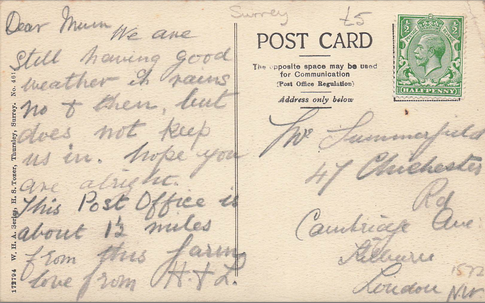 Surrey
£5
Dear Mum We are
still having good
weather it rains
no & then, but
does not keep
us in. hope you
are alright.
This Post Office is
about 1½ miles
from this farm
love from H & L.
POST CARD
The opposite space may be used
for Communication
(Post Office Regulation)
Address only below
HALFPENNY
Summerfield
47 Chichester
Rd
Cambridge Ave.
Kilburn
London
N.W.
1572
172794 W. H. A. Series, H. S. Tozer, Thursley, Surrey. No.